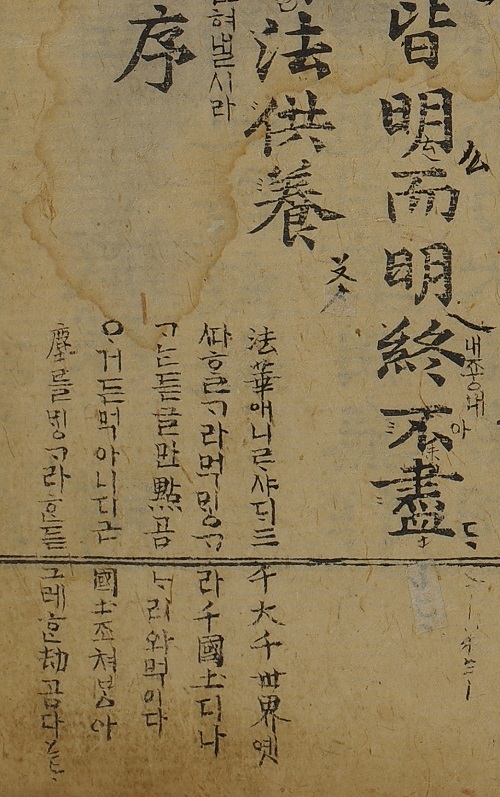 皆明而明終不盡
내죵내
法供養
혀낼시라
序
法華애니ᄅᆞ샤ᄃᆡ三千大千世界옛
ᄯᅡᄒᆞᆯᄀᆞ라먹ᄆᆡᇰᄀᆞ라千國土디나
ᄀᆞᄂᆞᆫ듣글만點곰ᄂᆞ리와먹이다
ᄋᆞ거든먹아니디근國土조쳐ᄇᆞᇫ아
塵ᄅᆞᆯᄆᆡᇰᄀᆞ라ᄒᆞᆫ듣그레ᄒᆞᆫ劫곰다